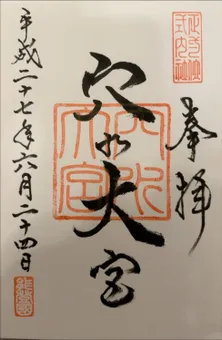 奉拝
穴水大宮
穴水
大宮
平成二十七年六月二十四日